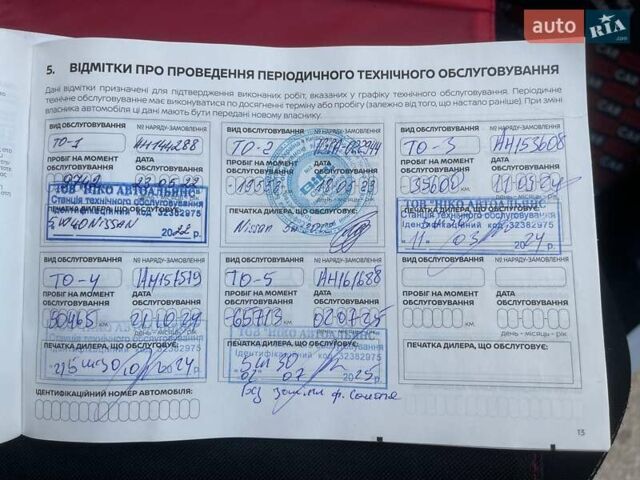 auto RIA
.com
5. ВІДМІТКИ ПРО ПРОВЕДЕННЯ ПЕРІОДИЧНОГО ТЕХНІЧНОГО ОБСЛУГОВУВАННЯ
Дані відмітки призначені для підтвердження виконаних робіт, вказаних у графіку технічного обслуговування. Періодичне
технічне обслуговування має виконуватись по досягненні терміну або пробігу (залежно від того, що настало раніше). При зміні
власника автомобіля ці дані мають бути передані новому власнику.
ВИД ОБСЛУГОВУВАННЯ № НАРЯДУ-ЗАМОВЛЕННЯ
ТО-1 АН144288
ПРОБІГ НА МОМЕНТ ОБСЛУГОВУВАННЯ ДАТА ОБСЛУГОВУВАННЯ
ПЕЧАТКА ДИЛЕРА, ЩО ОБСЛУГОВУЄ:
ТОВ "НІКО АВТОАЛЬЯНС"
Станція технічного обслуговування
Ідентифікаційний код 32382975
5W40 NISSAN
2022 р.
ВИД ОБСЛУГОВУВАННЯ № НАРЯДУ-ЗАМОВЛЕННЯ
ТО-2
ПРОБІГ НА МОМЕНТ ОБСЛУГОВУВАННЯ ДАТА ОБСЛУГОВУВАННЯ
ПЕЧАТКА ДИЛЕРА, ЩО ОБСЛУГОВУЄ:
Nissan
ВИД ОБСЛУГОВУВАННЯ № НАРЯДУ-ЗАМОВЛЕННЯ
ТО-3 АН153608
ПРОБІГ НА МОМЕНТ ОБСЛУГОВУВАННЯ ДАТА ОБСЛУГОВУВАННЯ
35600 11.03.24
ТОВ "НІКО АВТОАЛЬЯНС"
Станція технічного обслуговування
Ідентифікаційний код 32382975
"11" 03 2024 р.
ВИД ОБСЛУГОВУВАННЯ № НАРЯДУ-ЗАМОВЛЕННЯ
ТО-4 АН157519
ПРОБІГ НА МОМЕНТ ОБСЛУГОВУВАННЯ ДАТА ОБСЛУГОВУВАННЯ
50465 км 21.10.24
день – місяць – рік
ПЕЧАТКА ДИЛЕРА, ЩО ОБСЛУГОВУЄ:
2024 р.
ВИД ОБСЛУГОВУВАННЯ № НАРЯДУ-ЗАМОВЛЕННЯ
ТО-5 АН161688
ПРОБІГ НА МОМЕНТ ОБСЛУГОВУВАННЯ ДАТА ОБСЛУГОВУВАННЯ
65713 км 02.07.25
день – місяць – рік
ПЕЧАТКА ДИЛЕРА, ЩО ОБСЛУГОВУЄ:
ТОВ "НІКО АВТОАЛЬЯНС"
Ідентифікаційний код 32382975
5W30
"02" 07 2025 р.
ВИД ОБСЛУГОВУВАННЯ № НАРЯДУ-ЗАМОВЛЕННЯ
ПРОБІГ НА МОМЕНТ ОБСЛУГОВУВАННЯ ДАТА ОБСЛУГОВУВАННЯ
км
день – місяць – рік
ПЕЧАТКА ДИЛЕРА, ЩО ОБСЛУГОВУЄ:
ІДЕНТИФІКАЦІЙНИЙ НОМЕР АВТОМОБІЛЯ:
13